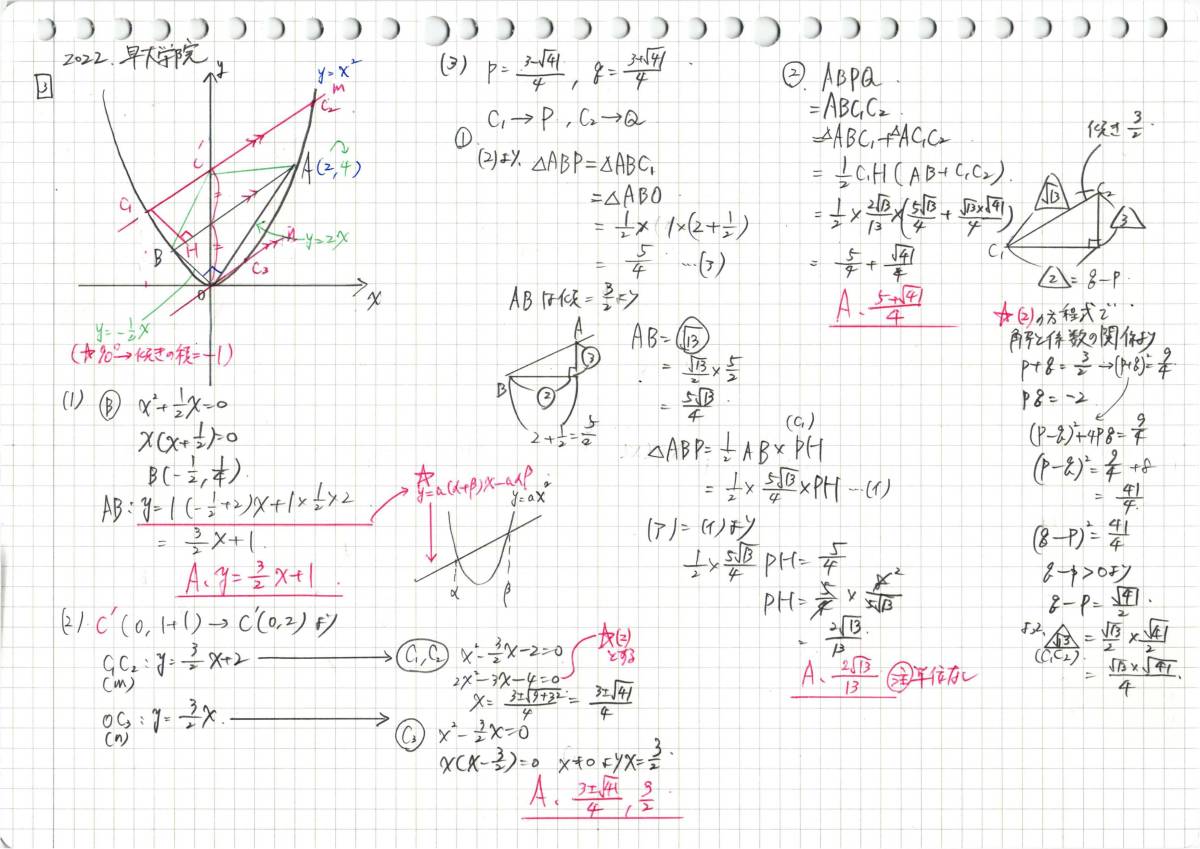 2022. 早大学院
3
y
x
O
y=x²
m
C₂
C'
A(2,4)
C₁
H
B
y=2x
n
C₃
y=-1/2x
(☆90°→傾きの積=-1)
(1) Ⓑ x²+1/2x=0
x(x+1/2)=0
B(-1/2, 1/4).
AB: y=1(-1/2+2)x+1×1/2×2
= 3/2x+1.
A. y=3/2x+1.
☆ y=a(α+β)x-aαβ
y=ax²
α
β
(2). C'(0, 1+1)→C'(0,2)より
C₁C₂: y=3/2x+2
(m)
OC₃: y=3/2x.
(n)
C₁,C₂ x²-3/2x-2=0
2x²-3x-4=0
☆(2)とする
x=3±√9+32/4=3±√41/4
C₃ x²-3/2x=0
x(x-3/2)=0 x≠0よりx=3/2.
A. 3±√41/4, 3/2
(3) p=3-√41/4, q=3+√41/4.
C₁→P, C₂→Q
①
(2)より. △ABP=△ABC₁
=△ABO
=1/2×1×(2+1/2)
=5/4 …(ア)
ABは傾=3/2より
A
B
③
②
2+1/2=5/2
AB=√13
=√13/2×5/2
=5√13/4
(C₁)
△ABP=1/2AB×PH
=1/2×5√13/4×PH …(イ)
(ア)=(イ)より
1/2×5√13/4 PH=5/4
PH=5/4×8²/5√13
=2√13/13.
A. 2√13/13 ㊟単位なし
② ABPQ.
=ABC₁C₂
=△ABC₁+△AC₁C₂
=1/2C₁H(AB+C₁C₂).
=1/2×2√13/13×(5√13/4+√13×√41/4)
=5/4+√41/4
A. 5+√41/4
傾き3/2.
√13
C₂
3
C₁
2=q-p.
☆(2)の方程式で
解と係数の関係より
p+q=3/2→(p+q)²=9/4
pq=-2
(p-q)²+4pq=9/4
(p-q)²=9/4+8
=41/4
(q-p)²=41/4
q-p>0より
q-p=√41/2.
よって √13=√13/2×√41/2
(C₁C₂)
=√13×√41/4.